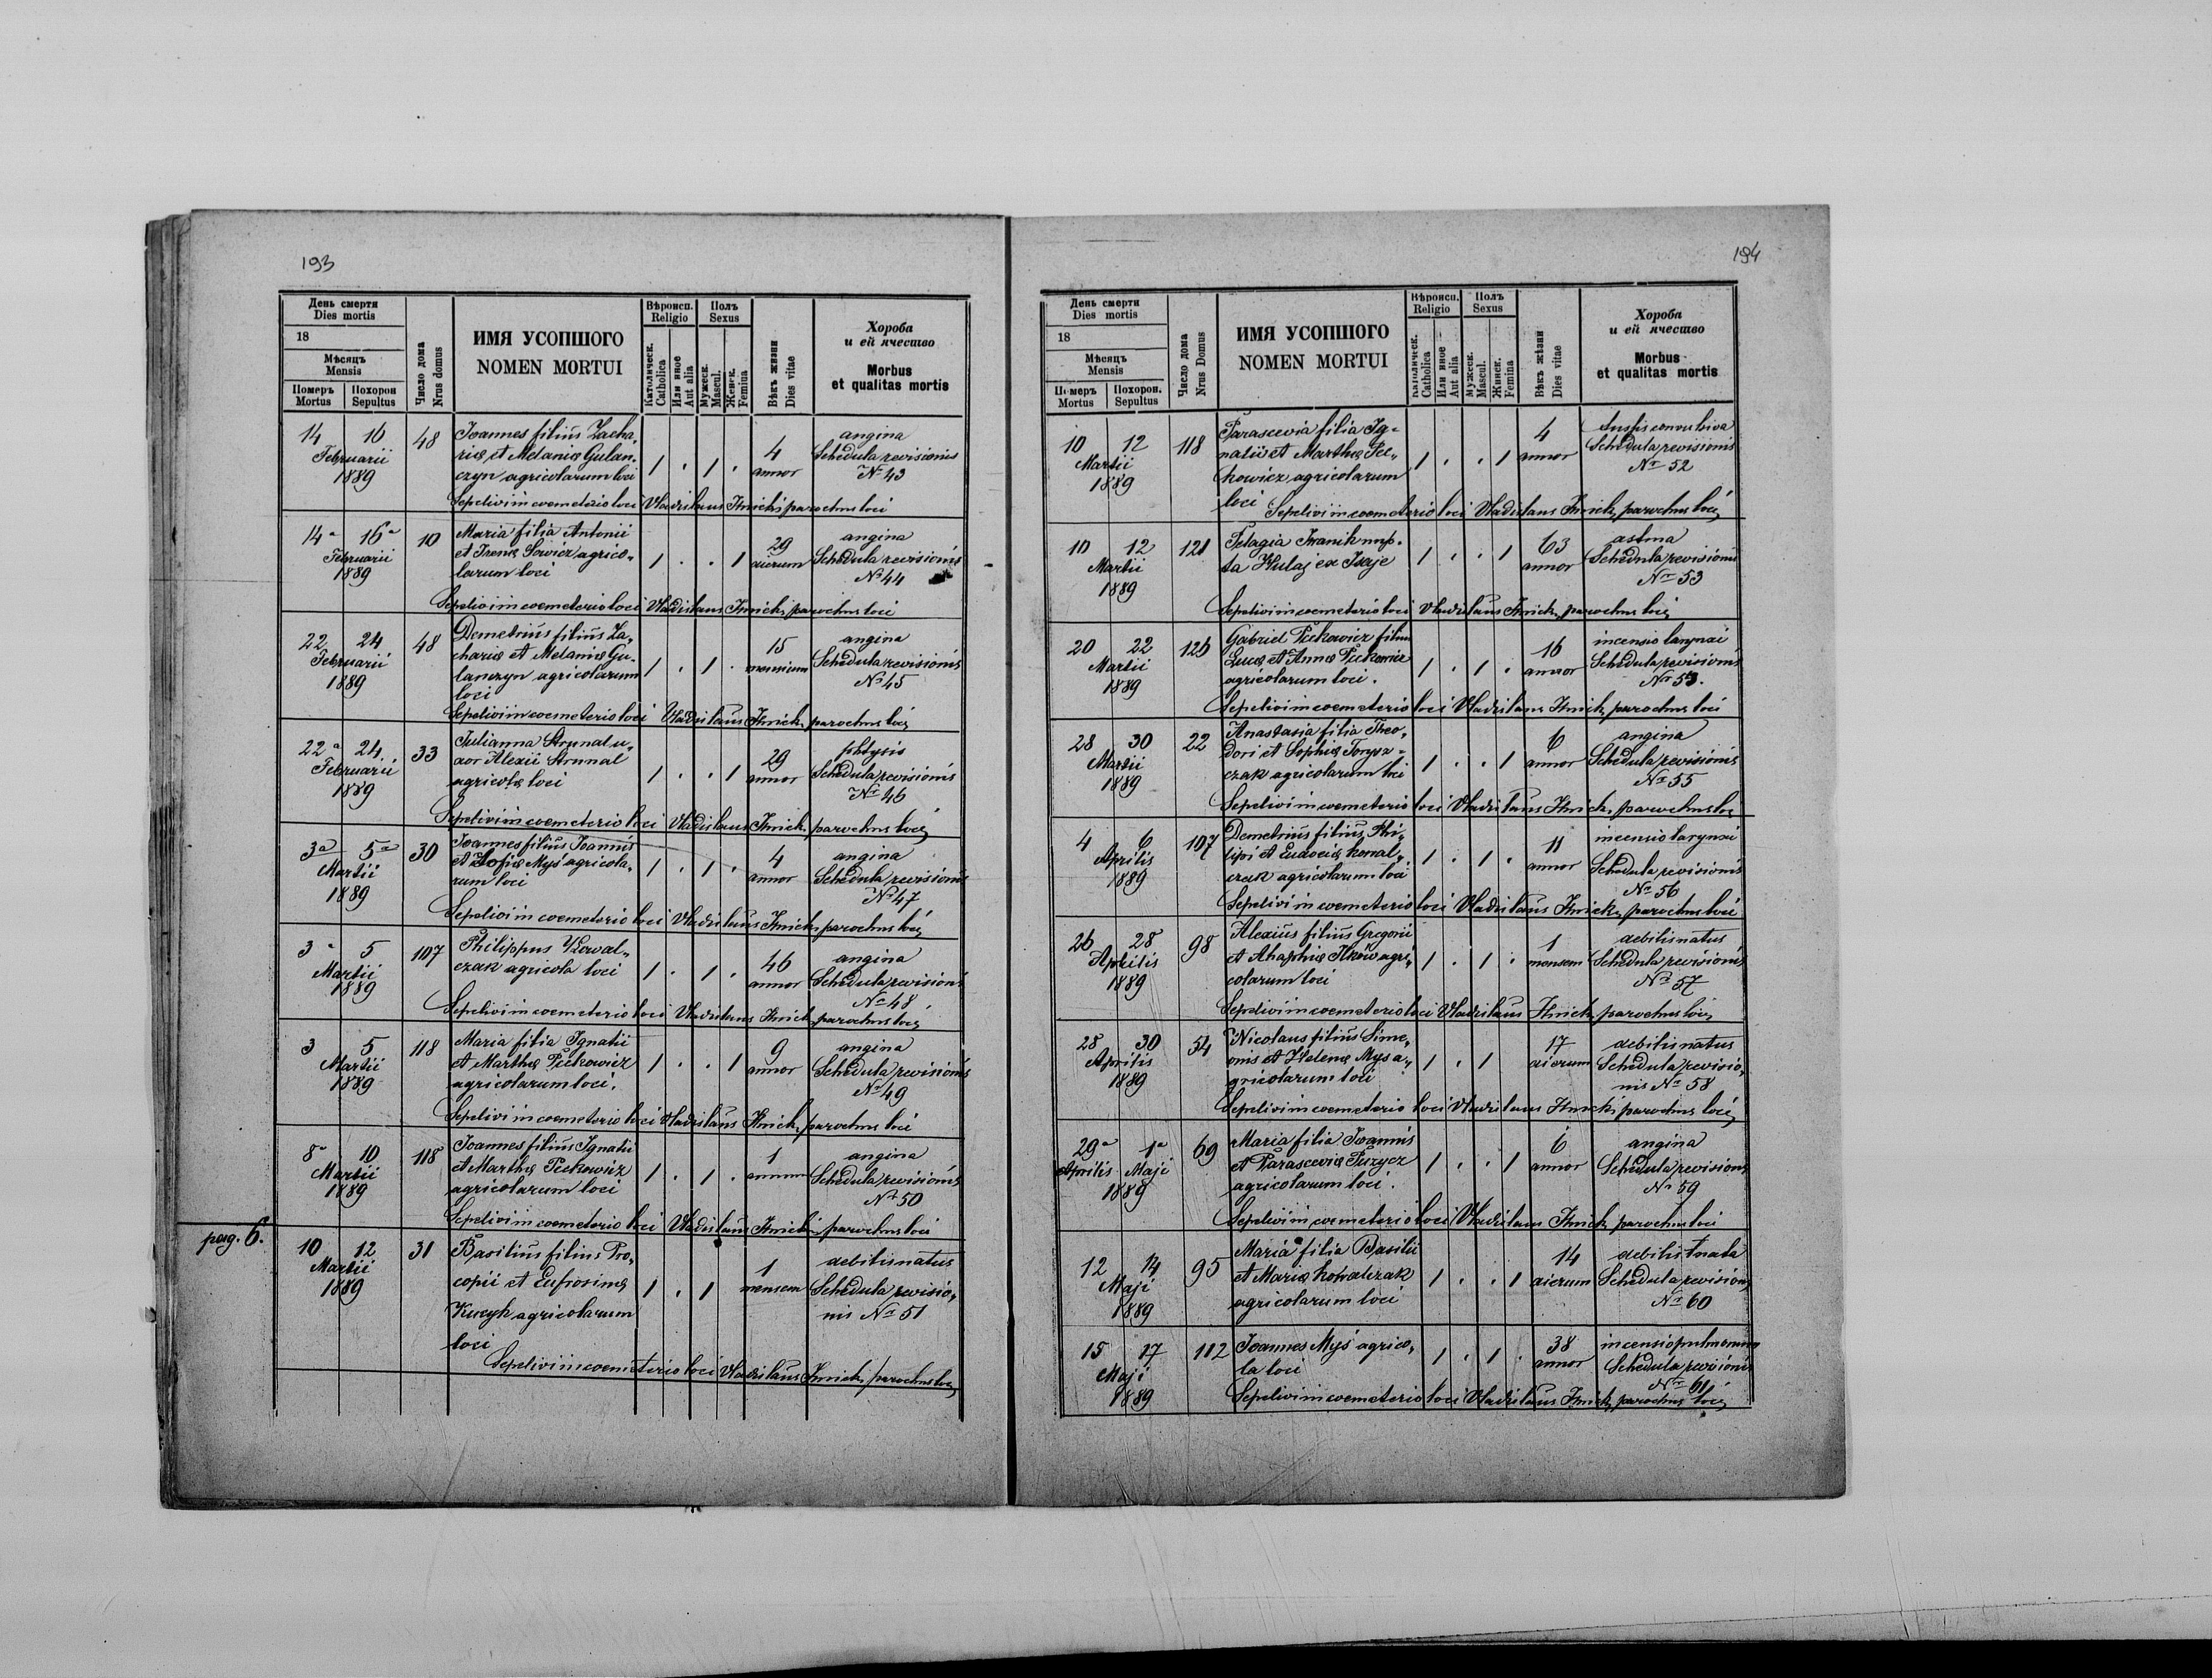 193
День смерти
Dies mortis
18
Мѣсяцъ
Mensis
Померъ
Mortus
Похорон
Sepultus
Число дома
Nrus domus
ИМЯ УСОПШОГО
NOMEN MORTUI
Вѣроисп.
Religio
Католическ.
Catholica
Или иное
Aut alia
Полъ
Sexus
Мужеск.
Mascul.
Женск.
Femina
Вѣкъ жизни
Dies vitae
Хороба
и ей ячество
Morbus
et qualitas mortis
14 16 48 Joannes filius Zacha- 4 angina
Februarii riæ et Melaniæ Gulan- 1 . 1 . annor Schedula revisionis
1889 czyn agricolarum loci № 43
Sepelivi in coemeterio loci Vladislaus Ilnicki parochus loci
14a 16a 10 Maria filia Antonii 29 angina
Februarii et Irenæ Sowicz agrico- 1 . . 1 dierum Schedula revisionis
1889 larum loci № 44
Sepelivi in coemeterio loci Vladislaus Ilnicki parochus loci
22 24 48 Demetrius filius Za- 15 angina
Februarii chariæ et Melaniæ Gu- 1 . 1 . mensium Schedula revisionis
1889 lanczyn agricolarum № 45
loci
Sepelivi in coemeterio loci Vladislaus Ilnicki parochus loci
22a 24 33 Julianna Strunal u- 29 phtysis
Februarii xor Alexii Strunal 1 . . 1 annor Schedula revisionis
1889 agricolæ loci № 46
Sepelivi in coemeterio loci Vladislaus Ilnicki parochus loci
3a 5a 30 Joannes filius Joannis 4 angina
Martii et Zofiæ Myś agricola- 1 . 1 . annor Schedula revisionis
1889 rum loci № 47
Sepelivi in coemeterio loci Vladislaus Ilnicki parochus loci
3a 5 107 Philippus Kowal- 46 angina
Martii czak agricola loci 1 . 1 . annor Schedula revisionis
1889 № 48
Sepelivi in coemeterio loci Vladislaus Ilnicki parochus loci
3 5 118 Maria filia Ignatii 9 angina
Martii et Marthæ Pickowicz 1 . . 1 annor Schedula revisionis
1889 agricolarum loci. № 49
Sepelivi in coemeterio loci Vladislaus Ilnicki parochus loci
8a 10 118 Joannes filius Ignatii 1 angina
Martii et Marthæ Pickowicz 1 . 1 . annum Schedula revisionis
1889 agricolarum loci № 50
Sepelivi in coemeterio loci Vladislaus Ilnicki parochus loci
pag. 6.
10 12 31 Basilius filius Pro- 1 debilis natus
Martii copii et Eufrosinæ 1 . 1 mensem Schedula revisio-
1889 Kucyk agricolarum nis № 51
loci
Sepelivi in coemeterio loci Vladislaus Ilnicki parochus loci
194
День смерти
Dies mortis
18
Мѣсяцъ
Mensis
Померъ
Mortus
Похорон.
Sepultus
Число дома
Nrus Domus
ИМЯ УСОПШОГО
NOMEN MORTUI
Вѣроисп.
Religio
Католическ.
Catholica
Или иное
Aut alia
Полъ
Sexus
Мужеск.
Mascul.
Жинск.
Femina
Вѣкъ жѣзни
Dies vitae
Хороба
и ей ячество
Morbus
et qualitas mortis
10 12 118 Parascevia filia Ig- 4
Martii natii et Marthæ Pic- 1 . . 1 annor Schedula revisionis
1889 kowicz agricolarum № 52
loci Sepelivi in coemeterio loci Vladislaus Ilnicki parochus loci
10 12 121 Pelagia Iwanik nup- 63 astma
Martii ta Hulaj ex Isaje 1 . . 1 annor Schedula revisionis
1889 № 53
Sepelivi in coemeterio loci Vladislaus Ilnicki parochus loci
20 22 126 Gabriel Pickowicz filius 16 incensio larynxi
Martii Lucæ et Annæ Pickowicz 1 . 1 . annor Schedula revisionis
1889 agricolarum loci. № 53.
Sepelivi in coemeterio loci Vladislaus Ilnicki parochus loci
28 30 22 Anastasia filia Theo- 6 angina
Martii dori et Sophiæ Torysz- 1 . . 1 annor Schedula revisionis
1889 czak agricolarum loci № 55
Sepelivi in coemeterio loci Vladislaus Ilnicki parochus loci
4 6 107 Demetrius filius Phi- 11 incensio larynxi
Aprilis lipi et Eudociæ Kowal- 1 . 1 . annor Schedula revisionis
1889 czak agricolarum loci № 56
Sepelivi in coemeterio loci Vladislaus Ilnicki parochus loci
26 28 98 Alexius filius Gregorii 1 debilis natus
Aprilis et Ahaphiæ Ilkow agri- 1 . 1 . mensem Schedula revisionis
1889 colarum loci № 57
Sepelivi in coemeterio loci Vladislaus Ilnicki parochus loci
28 30 54 Nicolaus filius Sime- 17 debilis natus
Aprilis onis et Helenæ Mys a- 1 . 1 dierum Schedula revisio-
1889 gricolarum loci nis № 58
Sepelivi in coemeterio loci Vladislaus Ilnicki parochus loci
29a 1a 69 Maria filia Joannis 6 angina
Aprilis Maji et Parasceviæ Puzycz 1 . . 1 annor Schedula revisionis
1889 agricolarum loci. № 59
Sepelivi in coemeterio loci Vladislaus Ilnicki parochus loci
12 14 95 Maria filia Basilii 14 debilis nata
Maji et Mariæ Kowalczak 1 . . 1 dierum Schedula revisionis
1889 agricolarum loci № 60
15 17 112 Joannes Myś agrico- 38 incensio pulmonum
Maji la loci 1 . 1 . annor Schedula revisionis
1889 № 61
Sepelivi in coemeterio loci Vladislaus Ilnicki parochus loci